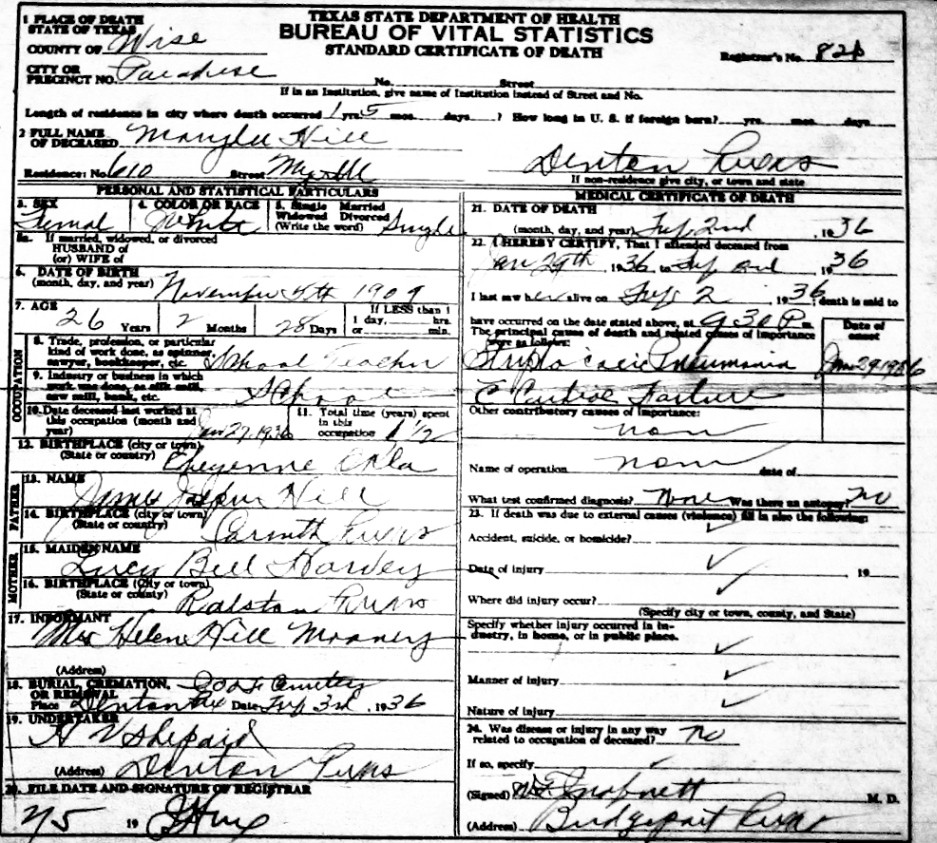 TEXAS STATE DEPARTMENT OF HEALTH
BUREAU OF VITAL STATISTICS
STANDARD CERTIFICATE OF DEATH
1 PLACE OF DEATH
STATE OF TEXAS
COUNTY OF Wise
Registrar's No. 82
CITY OR
PRECINCT NO. No. Street
If in an Institution, give name of Institution instead of Street and No.
Length of residence in city where death occurred 1 yrs 5 mos. days. ? How long in U. S. if foreign born? yrs. mos. days
2 FULL NAME
OF DECEASED Hill
Residence: No. 610 Street Denton Texas
If non-residence give city, or town and state
PERSONAL AND STATISTICAL PARTICULARS
3. SEX 4. COLOR OR RACE 5. Single Married
Widowed Divorced
(Write the word)
Femal White Single
5a. If married, widowed, or divorced
HUSBAND of
(or) WIFE of
6. DATE OF BIRTH
(month, day, and year) November 5th 1909
7. AGE If LESS than 1
26 Years 2 Months 28 Days 1 day, hrs.
or min.
OCCUPATION
8. Trade, profession, or particular
kind of work done, as spinner,
sawyer, bookkeeper, etc. School Teacher
9. Industry or business in which
work was done, as silk mill,
saw mill, bank, etc. School
10. Date deceased last worked at
this occupation (month and
year) Jan 27, 1936
11. Total time (years) spent
in this
occupation 1/2
12. BIRTHPLACE (city or town)
(State or country) Cheyenne Okla
FATHER
13. NAME
James Hill
14. BIRTHPLACE (city or town)
(State or country) Texas
MOTHER
15. MAIDEN NAME
Lucy Bell
16. BIRTHPLACE (City or town)
(State or county) Ralston Texas
17. INFORMANT
Mrs Helen Hill
(Address)
18. BURIAL, CREMATION,
OR REMOVAL Cemetery
Place Denton Tex Date 3rd, 1936
19. UNDERTAKER
(Address) Denton Texas
20. FILE DATE AND SIGNATURE OF REGISTRAR
2/5 19
MEDICAL CERTIFICATE OF DEATH
21. DATE OF DEATH
(month, day, and year) 2nd, 1936
22. I HEREBY CERTIFY, That I attended deceased from
Jan 29th, 1936, to 1936
I last saw her alive on 2, 1936, death is said to
have occurred on the date stated above, at 9:30 P. m.
The principal cause of death and related causes of importance
were as follows: Date of
onset
Pneumonia Jan 29 1936
Other contributory causes of importance:
Name of operation date of
What test confirmed diagnosis? None Was there an autopsy? no
23. If death was due to external causes (violence) fill in also the following:
Accident, suicide, or homicide?
Date of injury , 19
Where did injury occur?
(Specify city or town, county, and State)
Specify whether injury occurred in in-
dustry, in home, or in public place.
Manner of injury
Nature of injury
24. Was disease or injury in any way
related to occupation of deceased? no
If so, specify
(Signed) M. D.
(Address) Bridgeport Texas